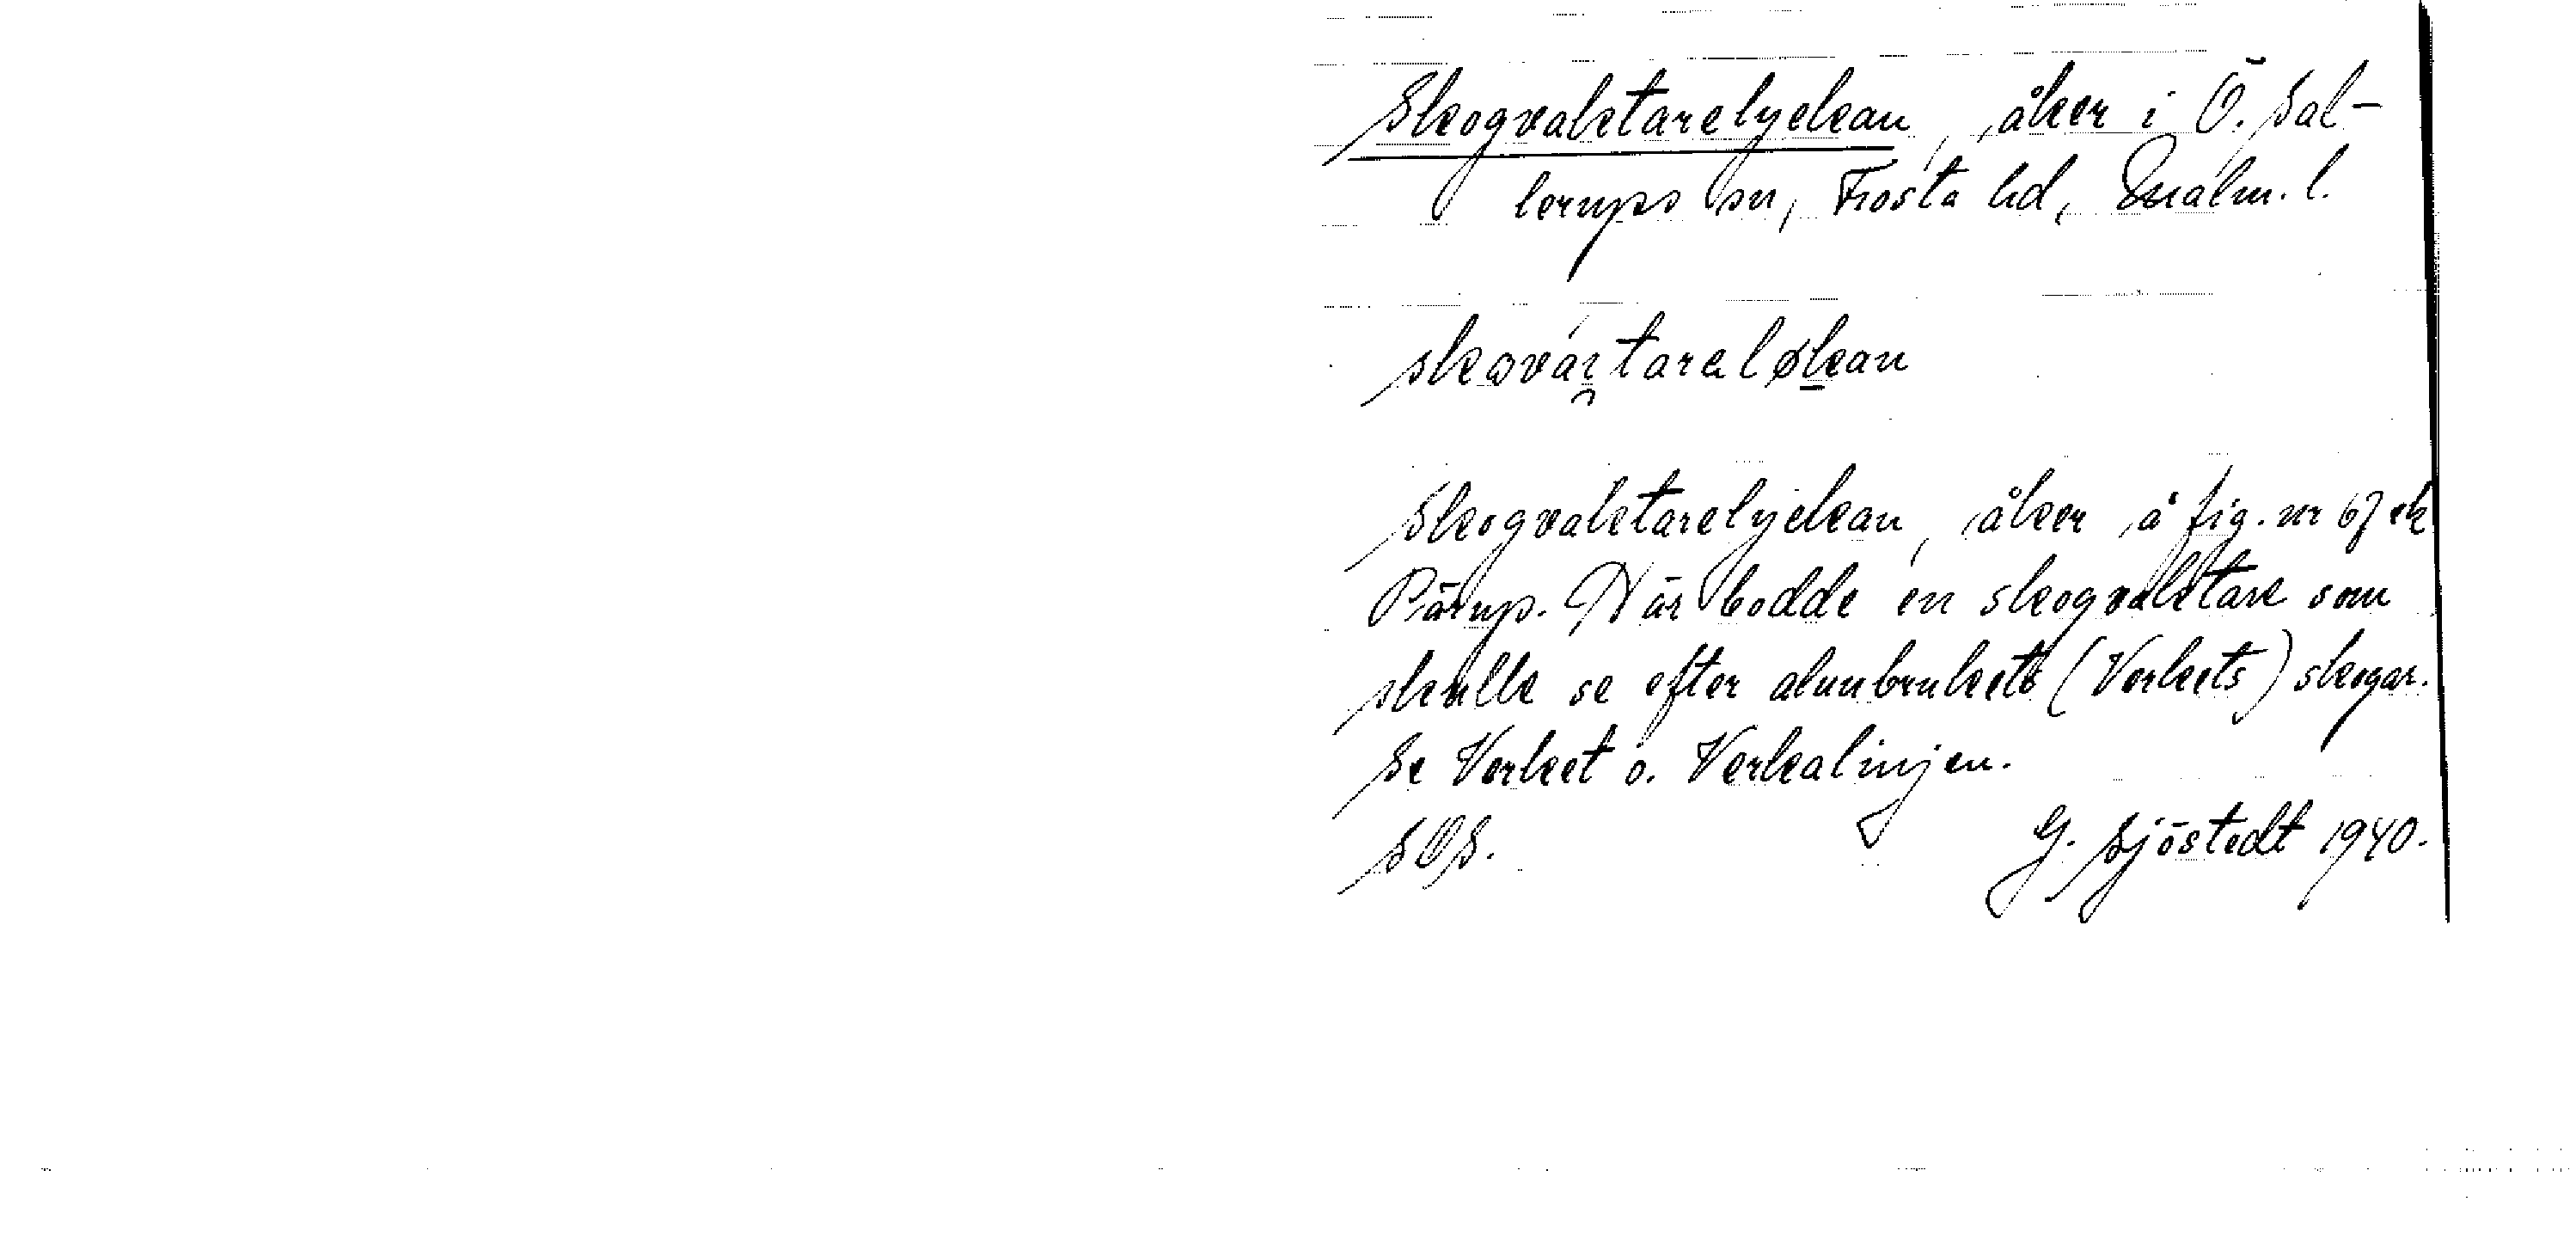 Skogvaktarelyckan, åker i Ö. Sal-
lerups sn, Frosta hd, Malm. l.
skovartareløkan
Skogvaktarelyckan, åker å fig. nr 67 ek
Pärup. Här bodde en skogvaktare som
skulle se efter alunbrukets (Verkets) skogar.
Se Verket o. Verkalinjen.
SOS. G. Sjöstedt 1940.